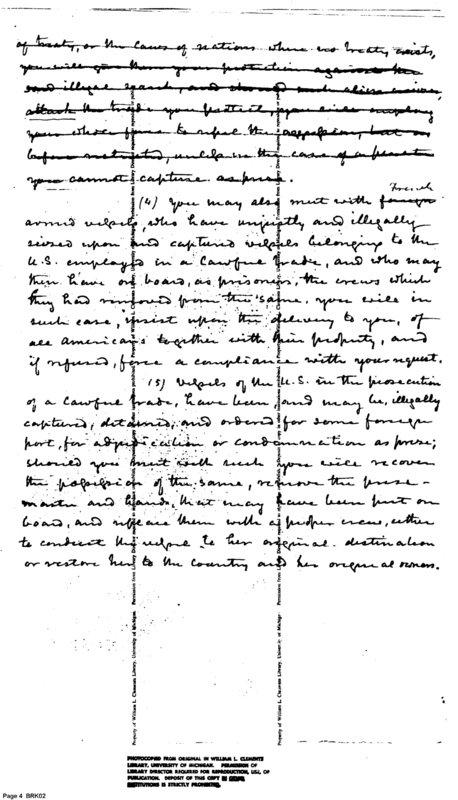 of treaty, or the laws of nations where no treaty exists,
you will give them your protection against the
said illegal search, and should such alien cruiser,
attack the trade you protect, you will employ
your whole force to repel the aggression, but as
before instructed, unless in the case of a
you cannot capture as prize.
(4) You may also meet with foreign French
armed vessels, who have unjustly and illegally
seized upon and captured vessels belonging to the
U.S. employed in a lawful trade, and who may
then have on board, as prisoners, the crews which
they had removed from the same. you will in
such case, insist upon the delivery to you, of
all Americans together with their property, and
if refused, force a compliance with your request.
(5) Vessels of the U.S. in the prosecution
of a lawful trade, have been, and may be, illegally
captured, detained, and ordered for some foreign
port, for adjudication or condemnation as prize;
should you meet with such you will recover
the possession of the same, remove the prize-
master and hands, that may have been put on
board, and replace them with a proper crew, either
to conduct the vessel to her original destination
or restore her to the Country and her original owners.
PHOTOCOPIED FROM ORIGINAL IN WILLIAM L. CLEMENTS
LIBRARY, UNIVERSITY OF MICHIGAN. PERMISSION OF
LIBRARY DIRECTOR REQUIRED FOR REPRODUCTION, USE, OR
PUBLICATION. DEPOSIT OF THIS COPY IN OTHER
INSTITUTIONS IS STRICTLY PROHIBITED.
Page 4 BRK02